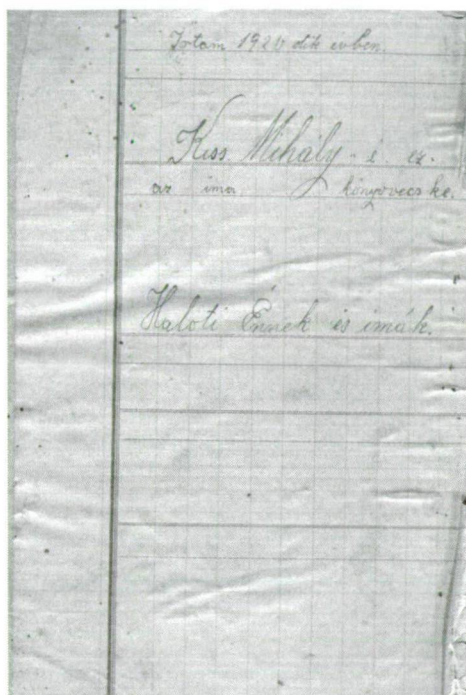 Irtam 1920 dik évben.
Kiss Mihály - é ez
az ima könyvecske.
Haloti Énnek is imák.